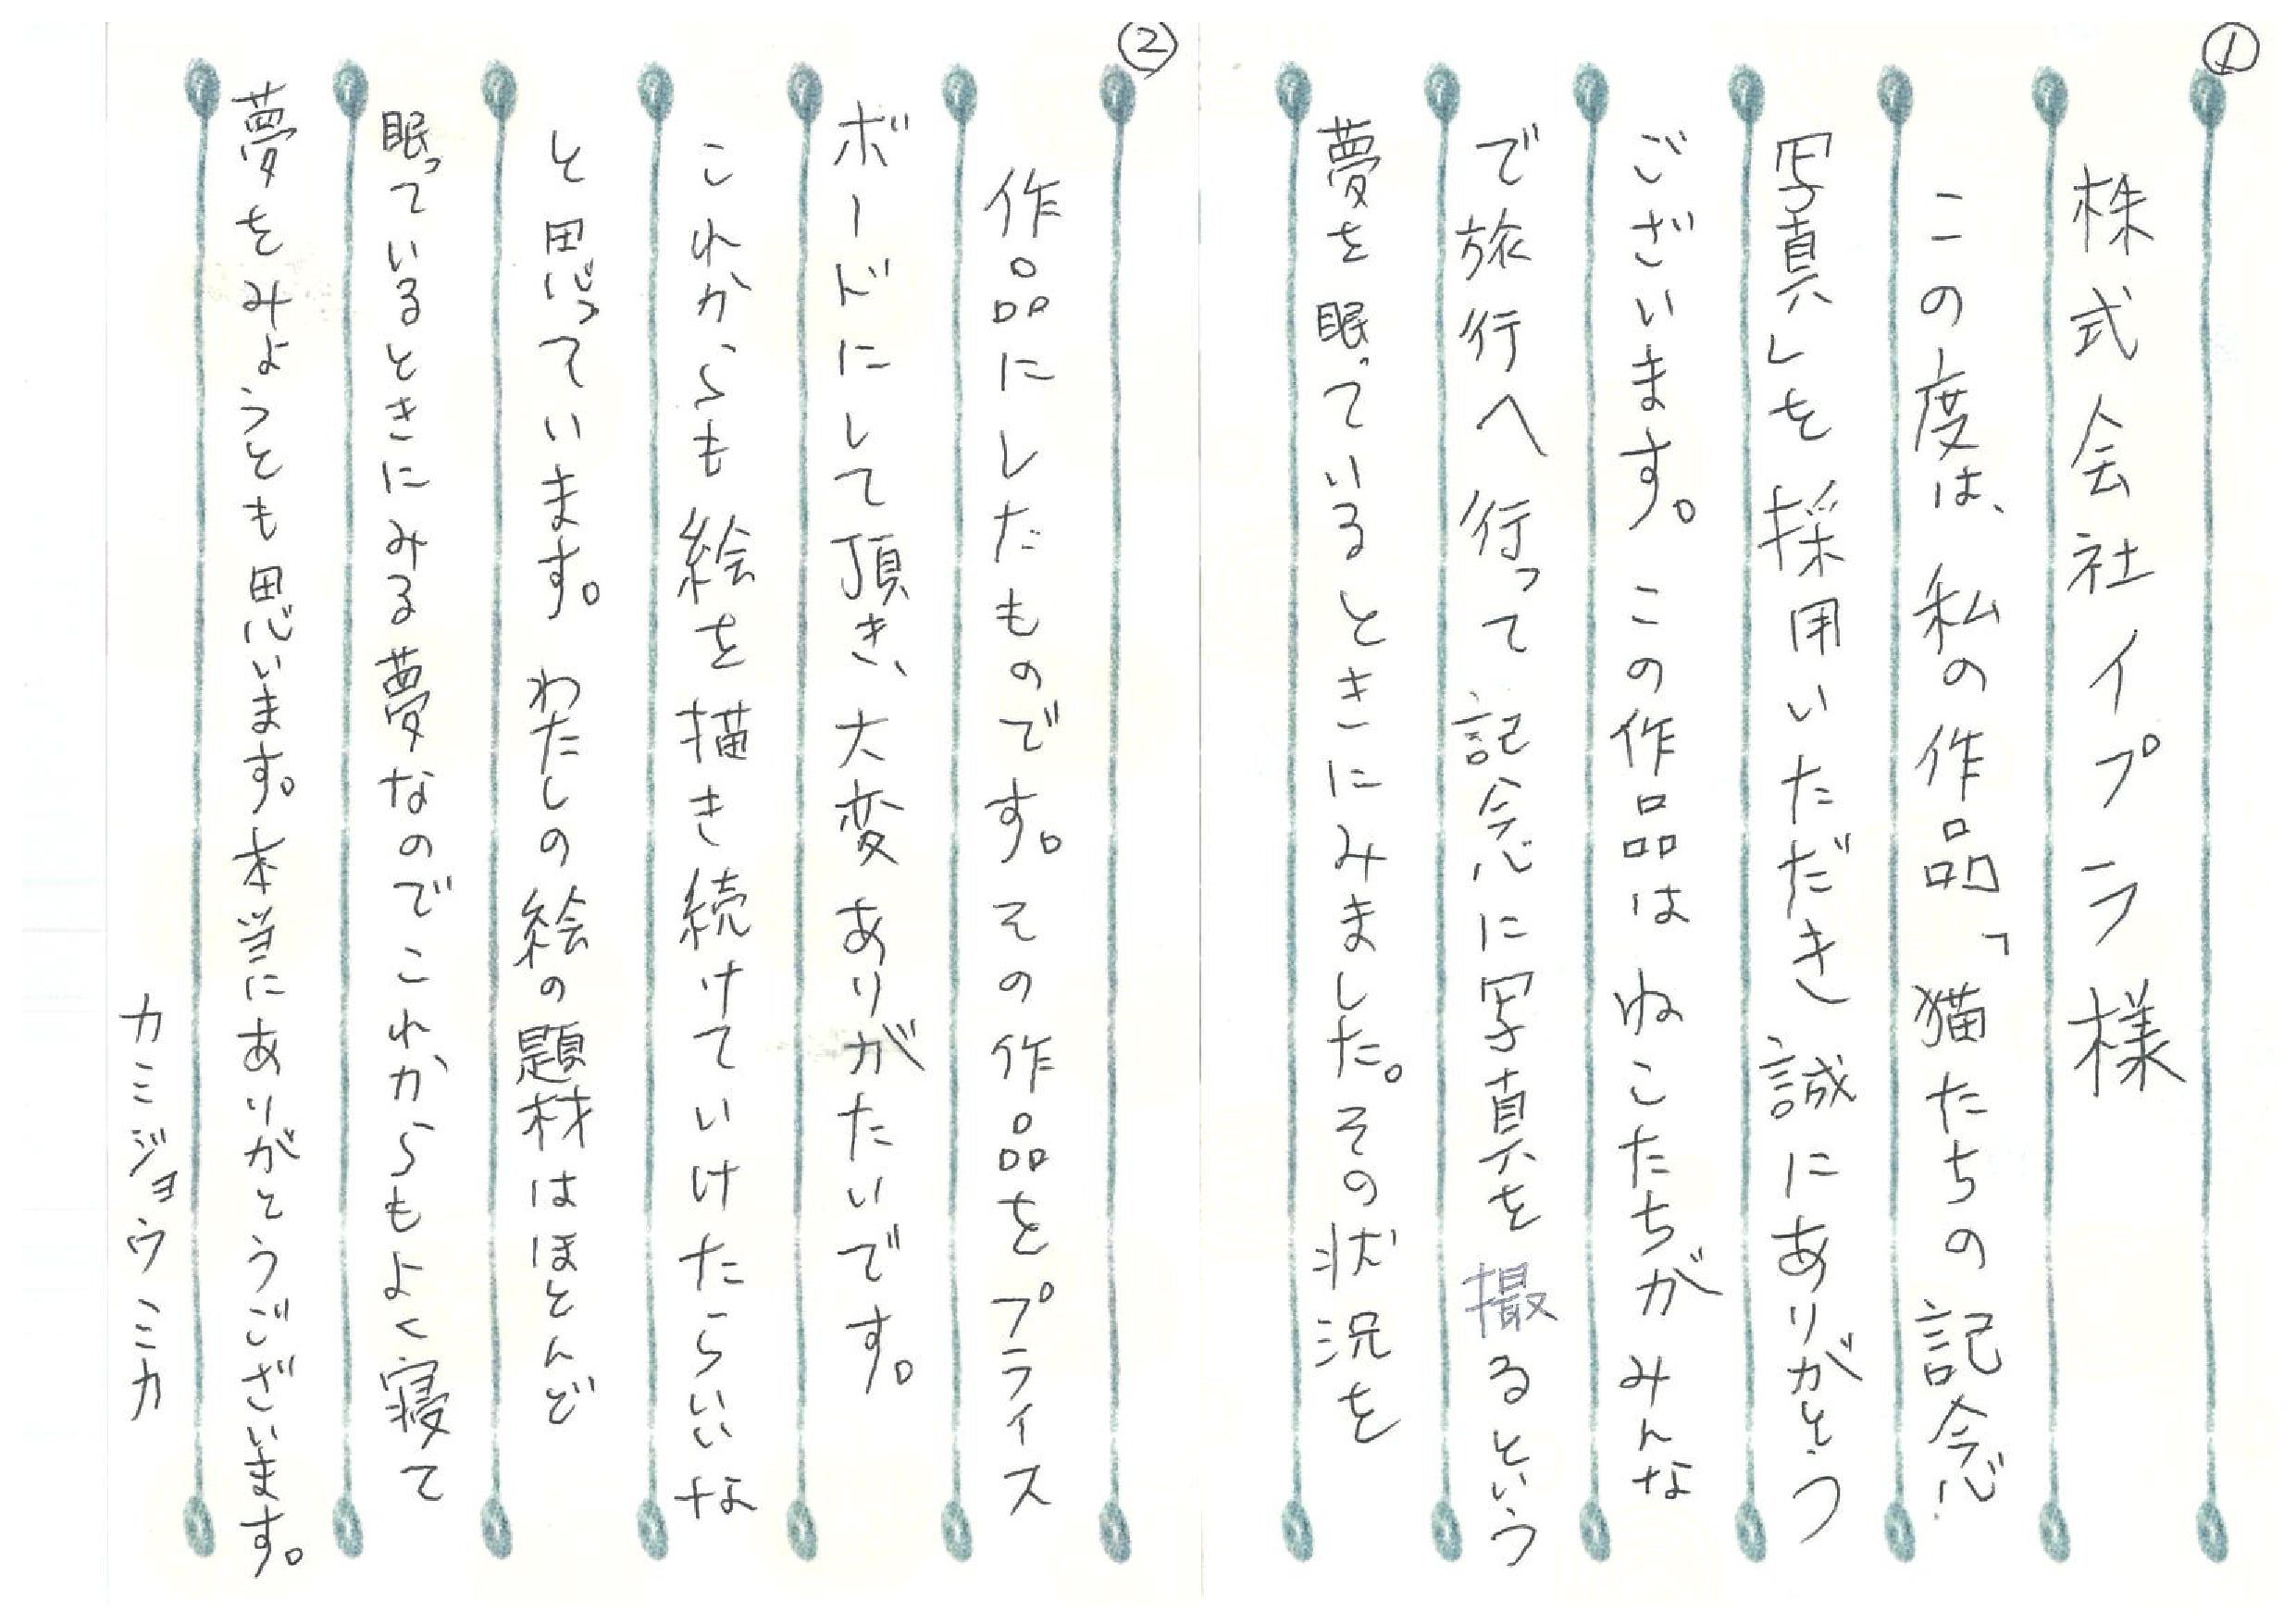 ①
株式会社イプラ様
この度は、私の作品「猫たちの記念
写真」を採用いただき誠にありがとう
ございます。この作品はねこたちがみんな
で旅行へ行って記念に写真を撮るという
夢を眠っているときにみました。その状況を
②
作品にしたものです。その作品をプライス
ボードにして頂き、大変ありがたいです。
これからも絵を描き続けていけたらいいな
と思っています。わたしの絵の題材はほとんど
眠っているときにみる夢なのでこれからもよく寝て
夢をみようとも思います。本当にありがとうございます。
カミジョウミカ